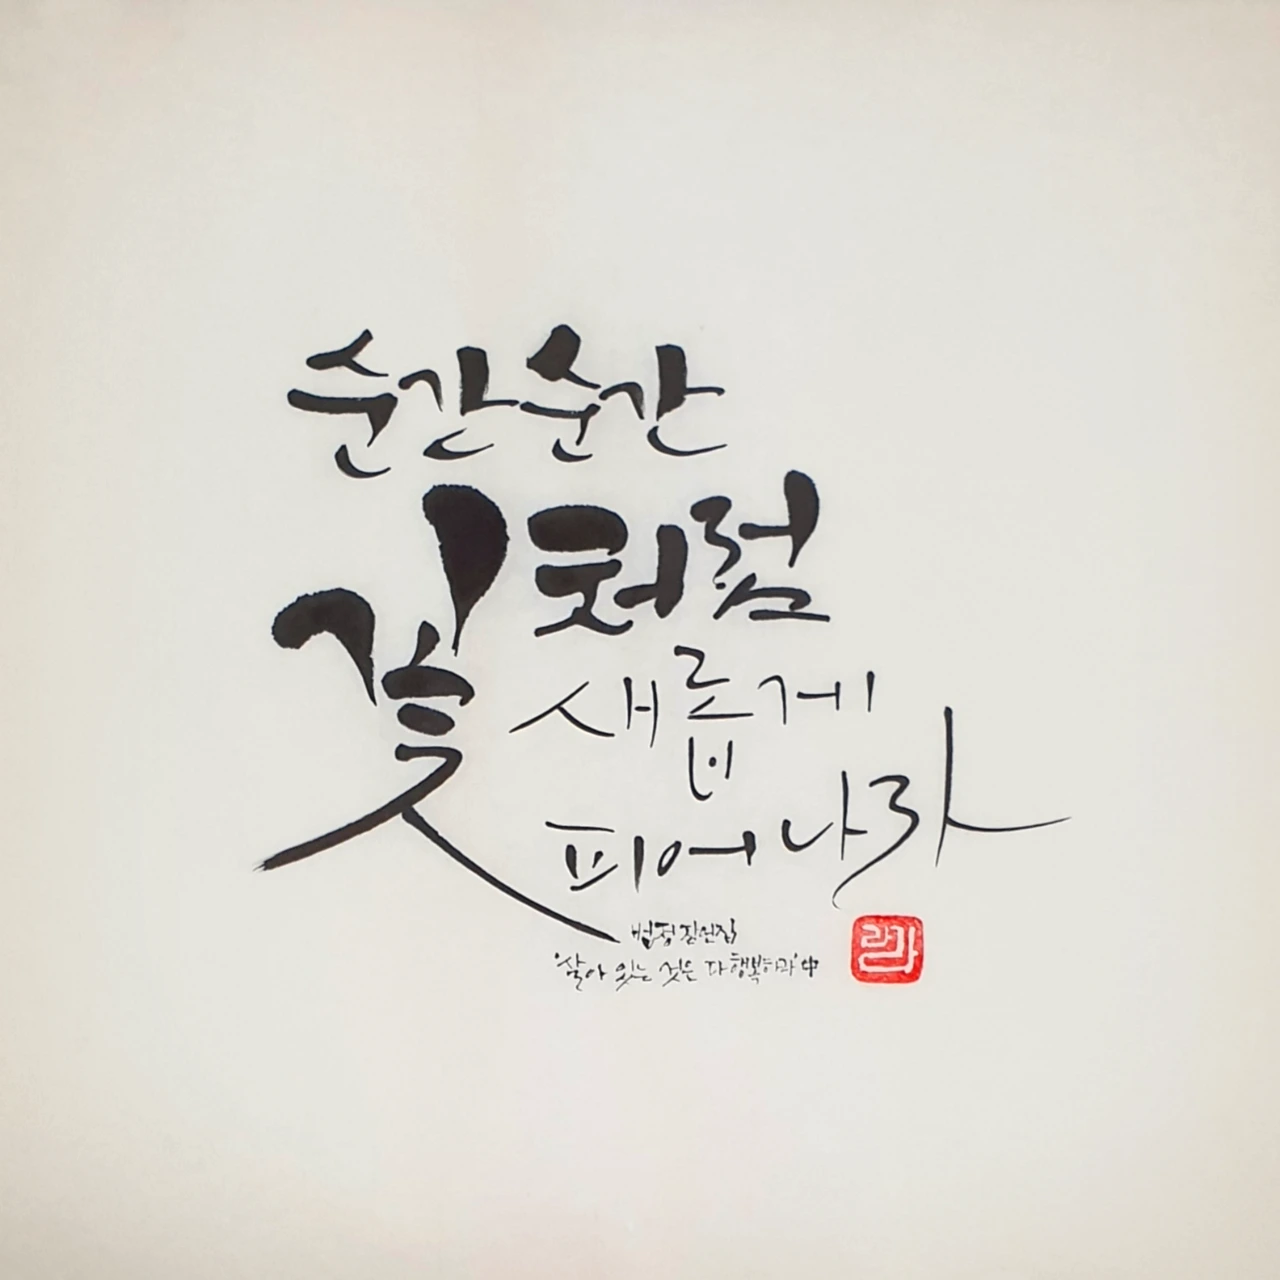 순간순간
꽃처럼
새롭게
피어나라
법정 잠언집
'살아 있는 것은 다 행복하라' 中